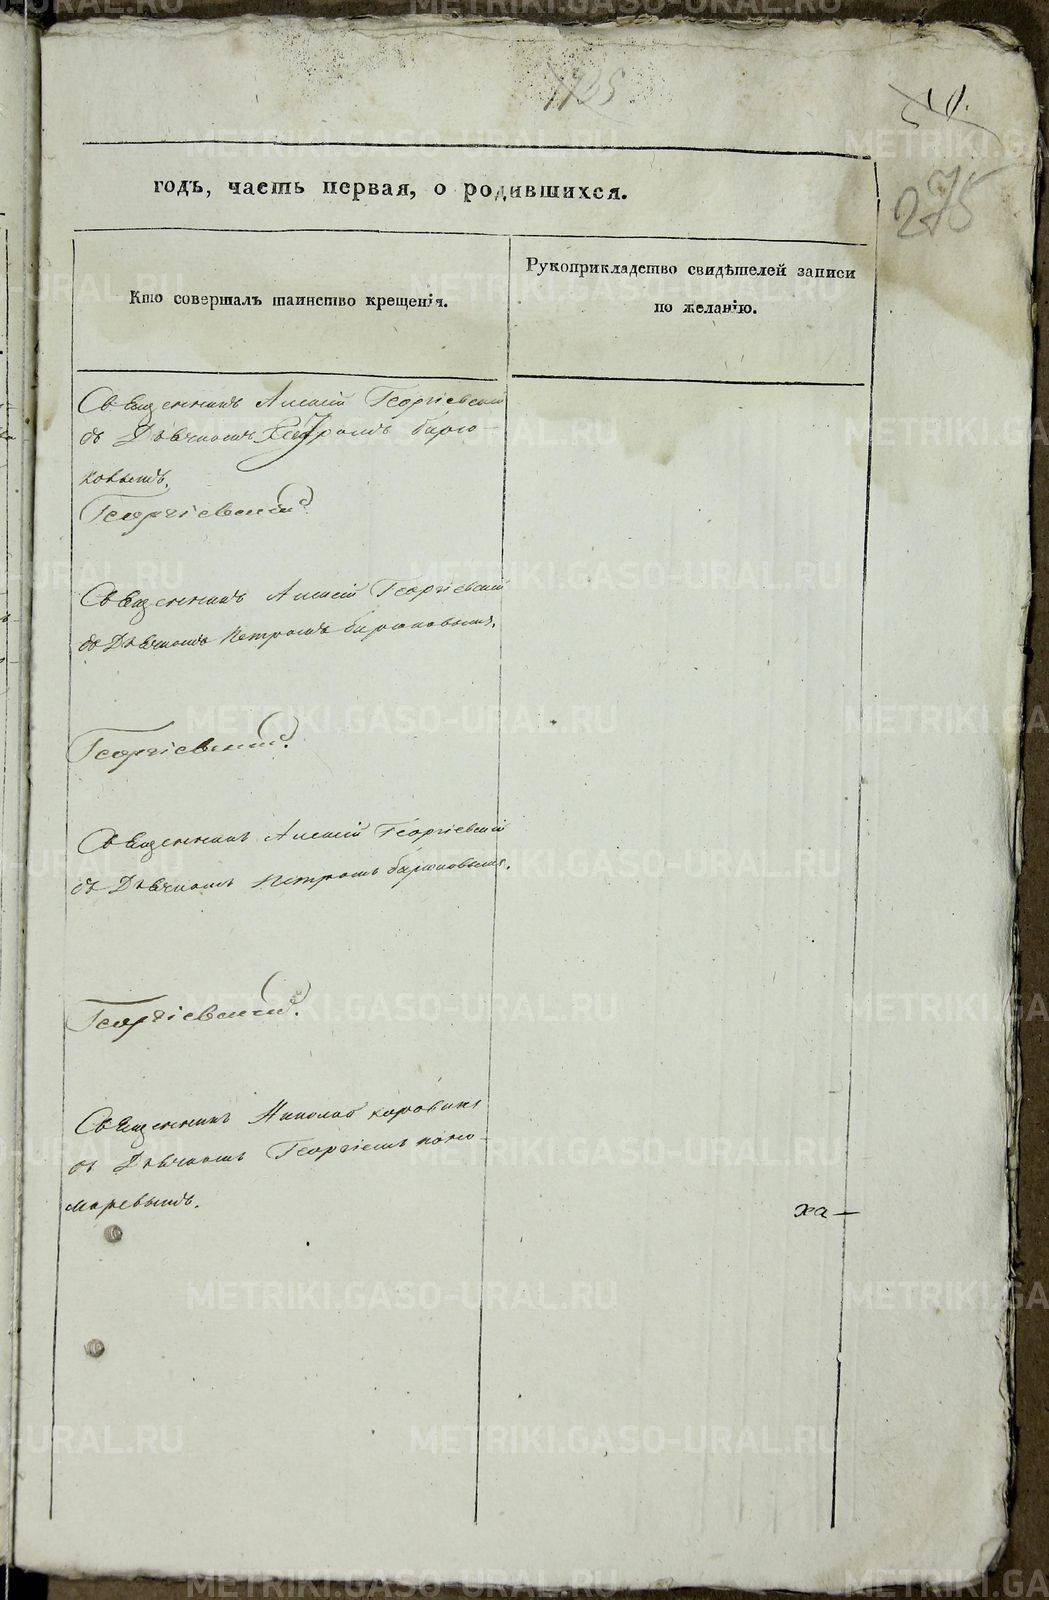 1725
275
годъ, часть первая, о родившихся.
Кто совершалъ таинство крещенія.
Рукоприкладство свидѣтелей записи
по желанію.
Священникъ Алексій Георгіевскій
съ Дьячкомъ Петромъ бирю-
ковымъ.
Георгіевскій.
Священникъ Алексій Георгіевскій
съ Дьячкомъ Петромъ бирюковымъ.
Георгіевскій.
Священникъ Алексій Георгіевскій
съ Дьячкомъ Петромъ бирюковымъ.
Георгіевскій.
Священникъ Николай коровинъ
съ Дьячкомъ Георгіемъ поно-
маревымъ.
ха—
METRIKI.GASO-URAL.RU